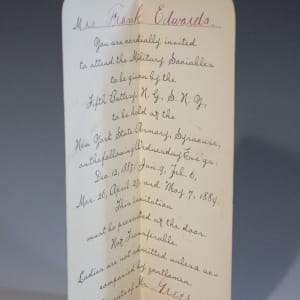 Mrs Frank Edwards.
You are cordially invited
to attend the Military Sociables
to be given by the
Fifth Battery, N. G., S. N. Y.,
to be held at the
New York State Armory, Syracuse,
on the following Wednesday Eve'gs:
Dec. 12, 1883, Jan 9, Feb. 6,
Mar. 26, April 23 and May 7, 1884.
This invitation
must be presented at the door.
Not Transferable.
Ladies are not admitted unless ac-
companied by gentlemen.
Mr.